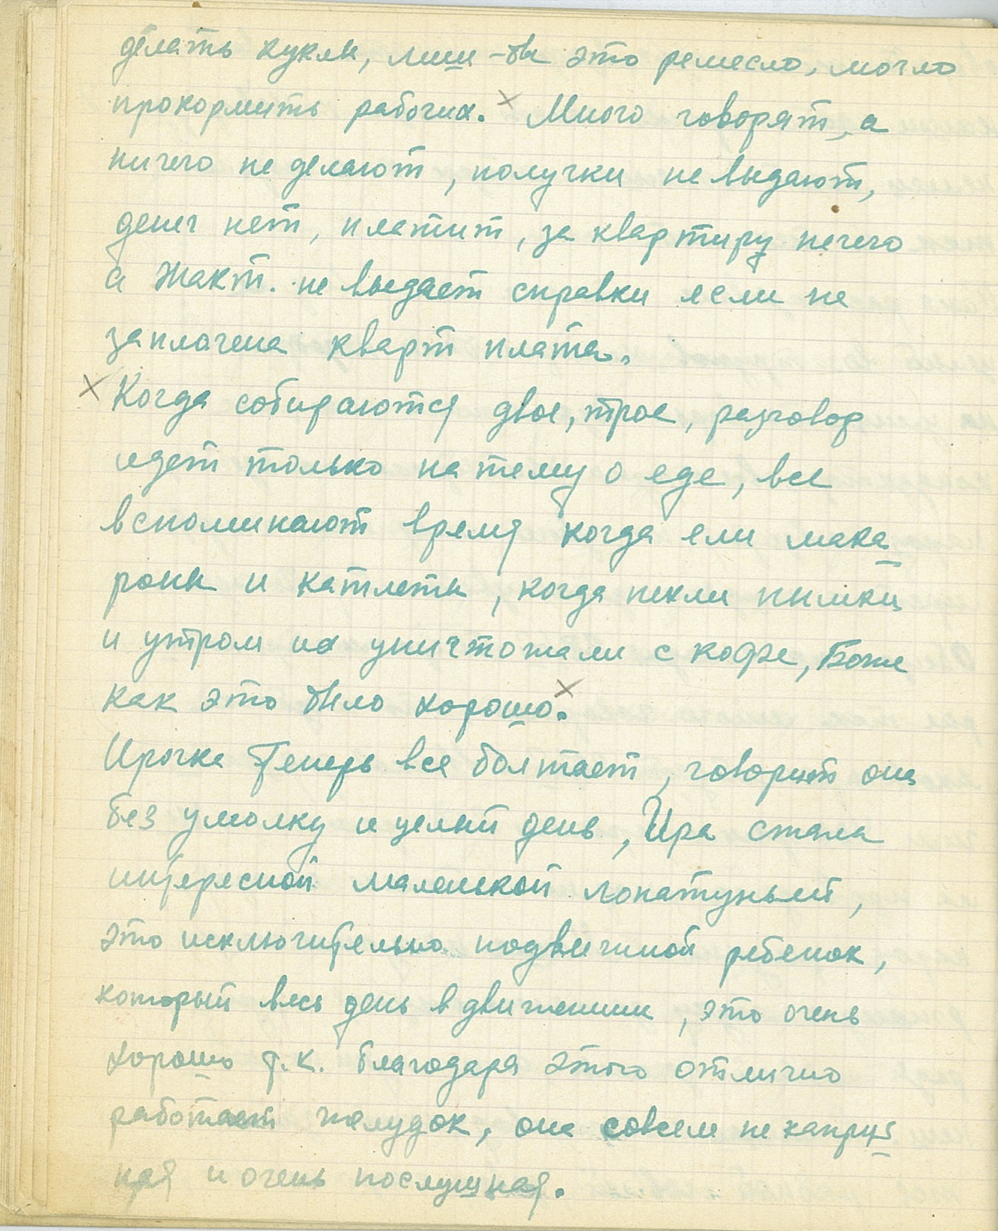 делать куклы, лиш-бы это ремесло, могло
прокормить рабочих. × Много говорят, а
ничего не делают, получки не выдают,
денег нет, платит, за квартиру нечего
а Жакт. не выдает справки если не
заплачена кварт плата.
× Когда собираются двое, трое, разговор
идет только на тему о еде, все
вспоминают время когда ели мака
роны и катлеты, когда пекли пышки
и утром их уничтожали с кофе, Боже
как это было хорошо. ×
Ирочка теперь все болтает, говорит она
без умолку и целый день, Ира стала
интересной маленькой лопатуньей,
это исключительно подвижной ребенок,
который весь день в движении, это очень
хорошо т.к. благодаря этого отлично
работает желудок, она совсем не каприз
ная и очень послушная.